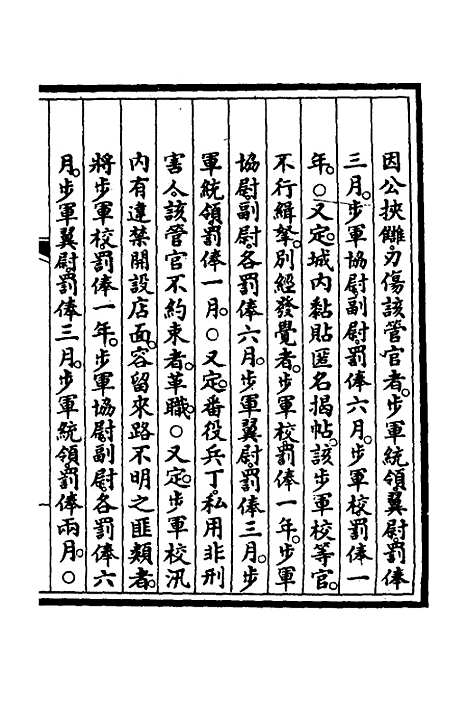 因公挾讎刃傷該管官者步軍統領翼尉罰俸
三月步軍協尉副尉罰俸六月步軍校罰俸一
年○又定城內黏貼匿名揭帖該步軍校等官
不行緝拏別經發覺者步軍校罰俸一年步軍
協尉副尉各罰俸六月步軍翼尉罰俸三月步
軍統領罰俸一月○又定番役兵丁私用非刑
害人該管官不約束者革職○又定步軍校汛
內有違禁開設店面容留來路不明之匪類者
將步軍校罰俸一年步軍協尉副尉各罰俸六
月步軍翼尉罰俸三月步軍統領罰俸兩月○